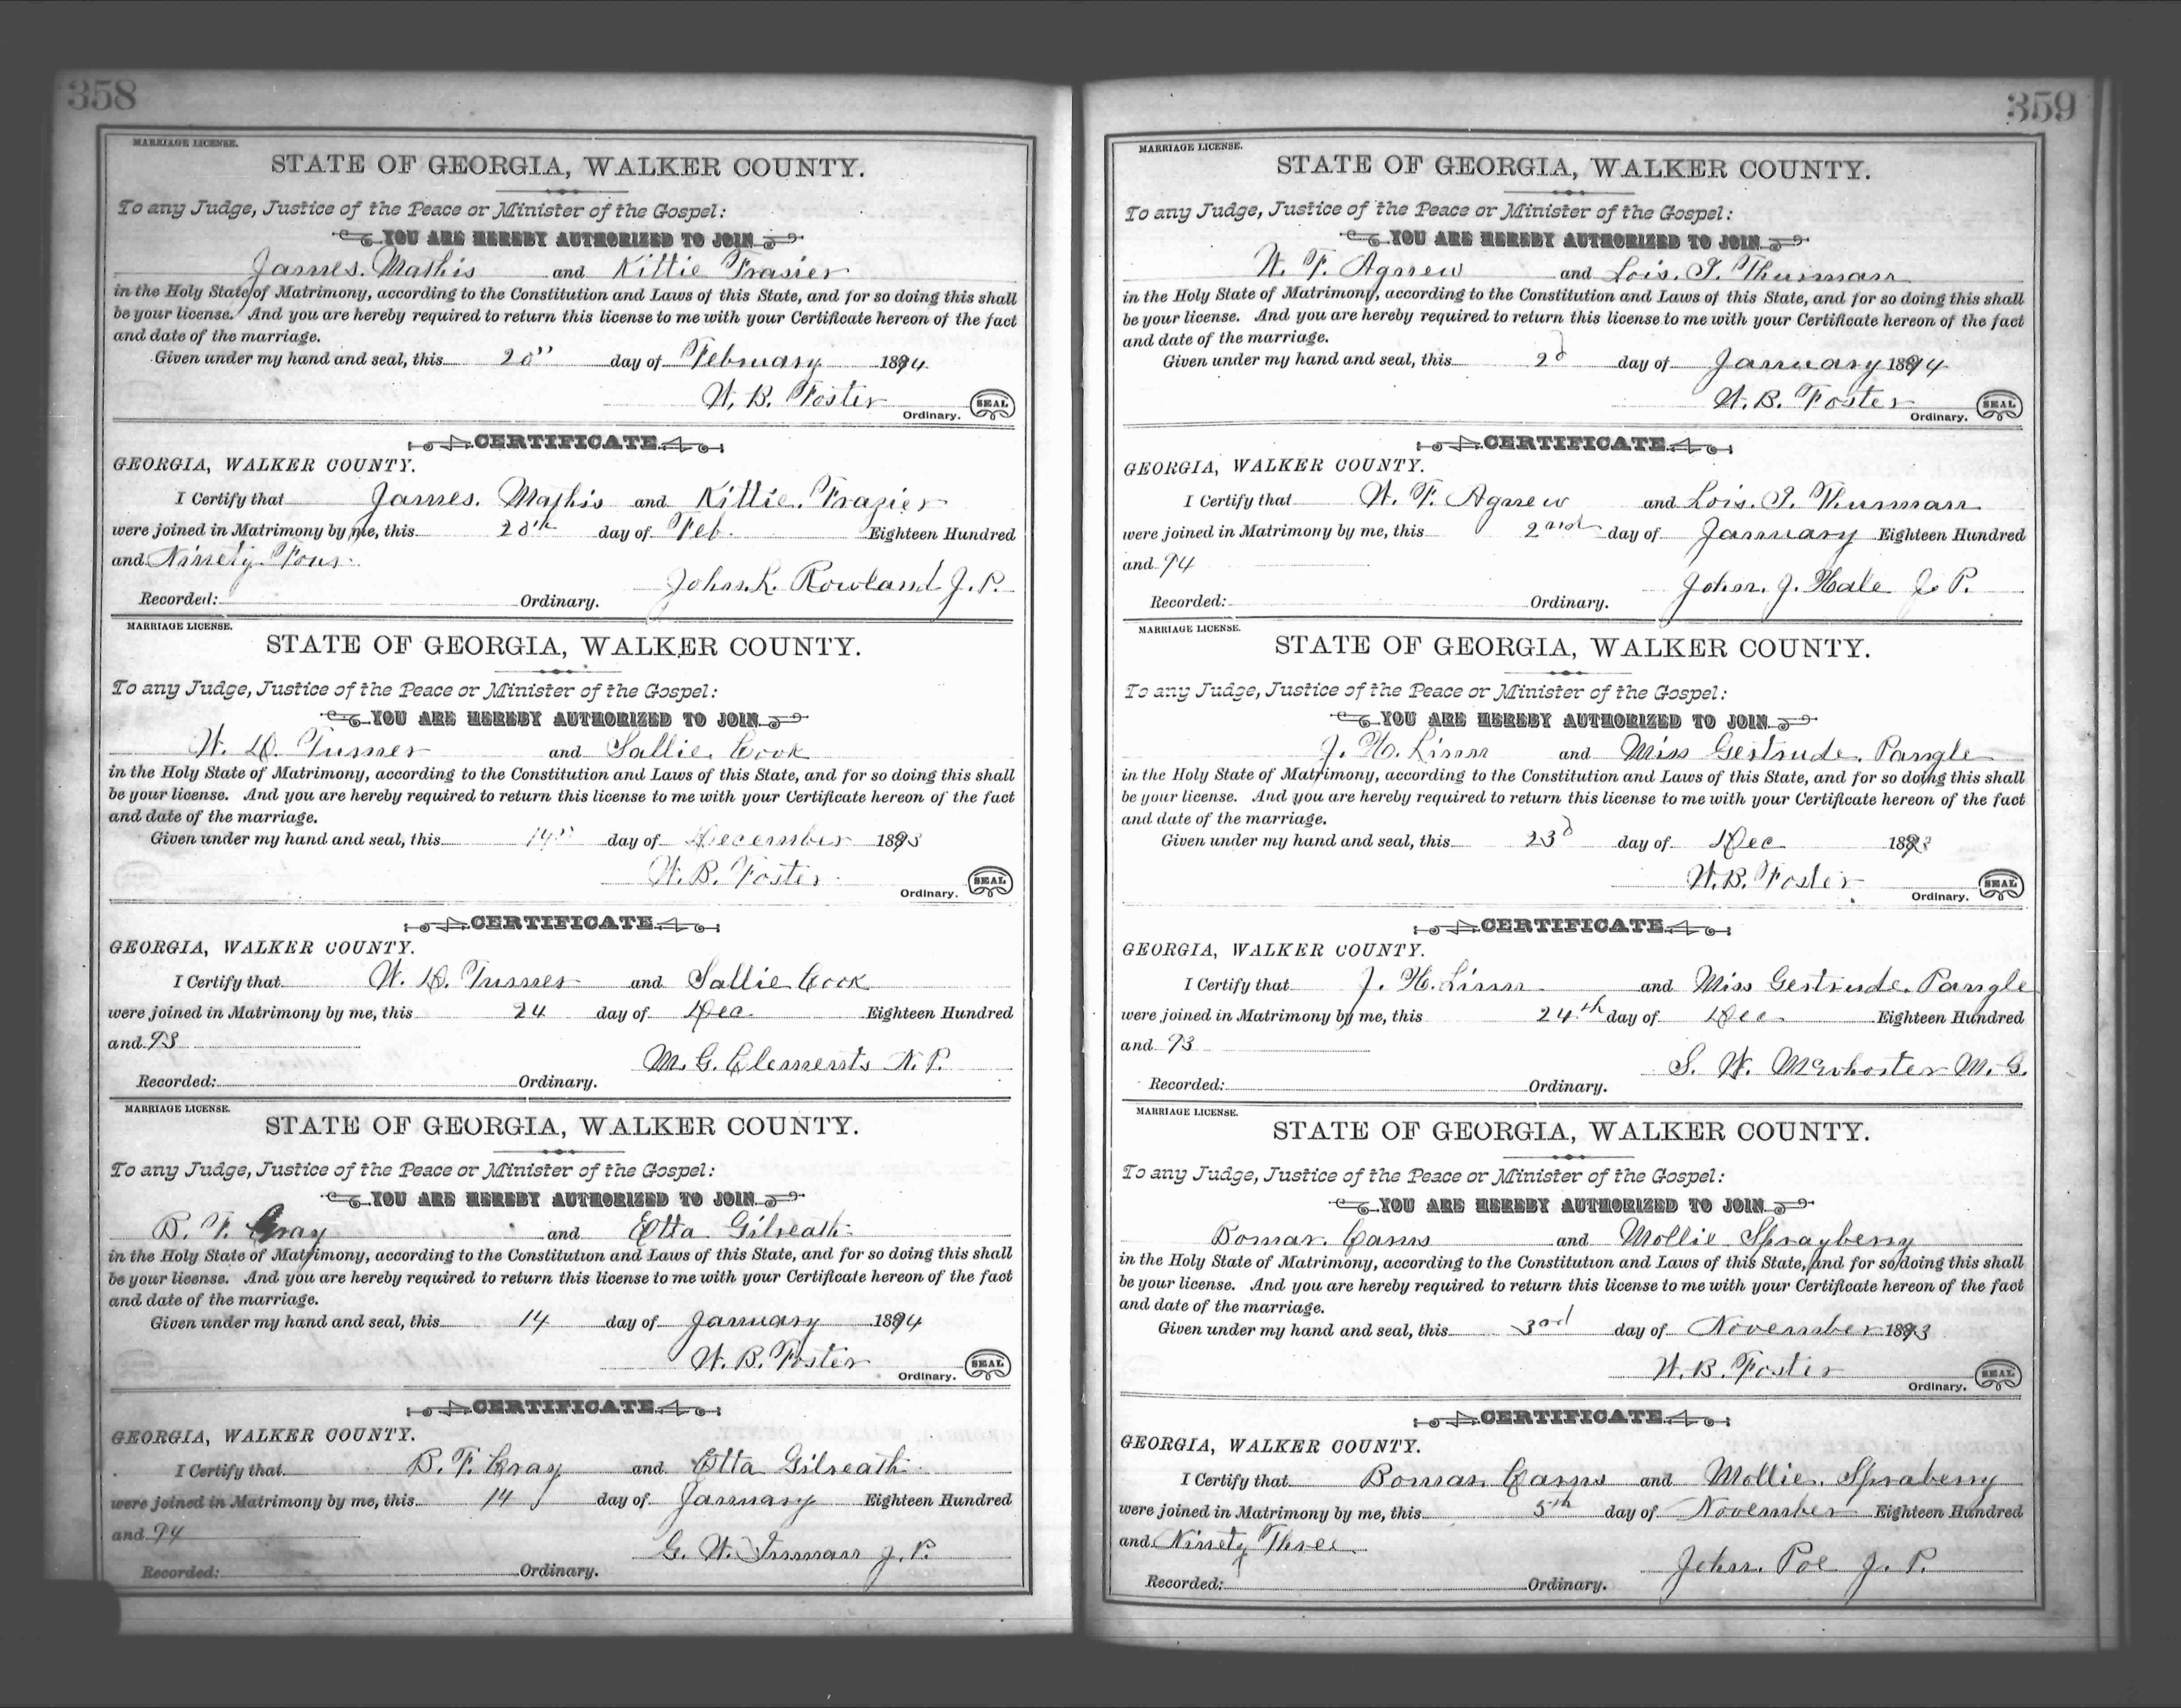 358
MARRIAGE LICENSE.
STATE OF GEORGIA, WALKER COUNTY.
To any Judge, Justice of the Peace or Minister of the Gospel:
YOU ARE HEREBY AUTHORIZED TO JOIN
James. Mathis and Kittie Frasier
in the Holy State of Matrimony, according to the Constitution and Laws of this State, and for so doing this shall
be your license. And you are hereby required to return this license to me with your Certificate hereon of the fact
and date of the marriage.
Given under my hand and seal, this 20" day of February 1894
W. B. Foster
Ordinary. SEAL
CERTIFICATE
GEORGIA, WALKER COUNTY.
I Certify that James. Mathis and Kittie. Frazier
were joined in Matrimony by me, this 20th day of Feb. Eighteen Hundred
and Ninety Four
John. L. Rowland J. P.
Recorded: Ordinary.
MARRIAGE LICENSE.
STATE OF GEORGIA, WALKER COUNTY.
To any Judge, Justice of the Peace or Minister of the Gospel:
YOU ARE HEREBY AUTHORIZED TO JOIN
W. D. Turner and Sallie. Cook
in the Holy State of Matrimony, according to the Constitution and Laws of this State, and for so doing this shall
be your license. And you are hereby required to return this license to me with your Certificate hereon of the fact
and date of the marriage.
Given under my hand and seal, this 14" day of December 1893
W. B. Foster
Ordinary. SEAL
CERTIFICATE
GEORGIA, WALKER COUNTY.
I Certify that W. D. Turner and Sallie Cook
were joined in Matrimony by me, this 24 day of Dec. Eighteen Hundred
and 93
M. G. Clements N. P.
Recorded: Ordinary.
MARRIAGE LICENSE.
STATE OF GEORGIA, WALKER COUNTY.
To any Judge, Justice of the Peace or Minister of the Gospel:
YOU ARE HEREBY AUTHORIZED TO JOIN
B. F. Gray and Etta Gilreath
in the Holy State of Matrimony, according to the Constitution and Laws of this State, and for so doing this shall
be your license. And you are hereby required to return this license to me with your Certificate hereon of the fact
and date of the marriage.
Given under my hand and seal, this 14 day of January 1894
W. B. Foster
Ordinary. SEAL
CERTIFICATE
GEORGIA, WALKER COUNTY.
I Certify that B. F. Gray and Etta Gilreath
were joined in Matrimony by me, this 14 day of January Eighteen Hundred
and 94
G. W. Inman J. P.
Recorded: Ordinary.
359
MARRIAGE LICENSE.
STATE OF GEORGIA, WALKER COUNTY.
To any Judge, Justice of the Peace or Minister of the Gospel:
YOU ARE HEREBY AUTHORIZED TO JOIN
W. F. Agnew and Lois. I. Thurman
in the Holy State of Matrimony, according to the Constitution and Laws of this State, and for so doing this shall
be your license. And you are hereby required to return this license to me with your Certificate hereon of the fact
and date of the marriage.
Given under my hand and seal, this 2d day of January 1894
W. B. Foster
Ordinary. SEAL
CERTIFICATE
GEORGIA, WALKER COUNTY.
I Certify that W. F. Agnew and Lois. I. Thurman
were joined in Matrimony by me, this 2nd day of January Eighteen Hundred
and 94
John. J. Hale J. P.
Recorded: Ordinary.
MARRIAGE LICENSE.
STATE OF GEORGIA, WALKER COUNTY.
To any Judge, Justice of the Peace or Minister of the Gospel:
YOU ARE HEREBY AUTHORIZED TO JOIN
J. H. Linn and Miss Gertrude. Pangle
in the Holy State of Matrimony, according to the Constitution and Laws of this State, and for so doing this shall
be your license. And you are hereby required to return this license to me with your Certificate hereon of the fact
and date of the marriage.
Given under my hand and seal, this 23d day of Dec 1893
W. B. Foster
Ordinary. SEAL
CERTIFICATE
GEORGIA, WALKER COUNTY.
I Certify that J. H. Linn and Miss Gertrude. Pangle
were joined in Matrimony by me, this 24th day of Dec Eighteen Hundred
and 93
S. W. McWhorter M. G.
Recorded: Ordinary.
MARRIAGE LICENSE.
STATE OF GEORGIA, WALKER COUNTY.
To any Judge, Justice of the Peace or Minister of the Gospel:
YOU ARE HEREBY AUTHORIZED TO JOIN
Bomar. Carns and Mollie Sprayberry
in the Holy State of Matrimony, according to the Constitution and Laws of this State, and for so doing this shall
be your license. And you are hereby required to return this license to me with your Certificate hereon of the fact
and date of the marriage.
Given under my hand and seal, this 3rd day of November 1893
W. B. Foster
Ordinary. SEAL
CERTIFICATE
GEORGIA, WALKER COUNTY.
I Certify that Bomar. Carns and Mollie. Spraberry
were joined in Matrimony by me, this 5th day of November Eighteen Hundred
and Ninety Three
John. Poe J. P.
Recorded: Ordinary.